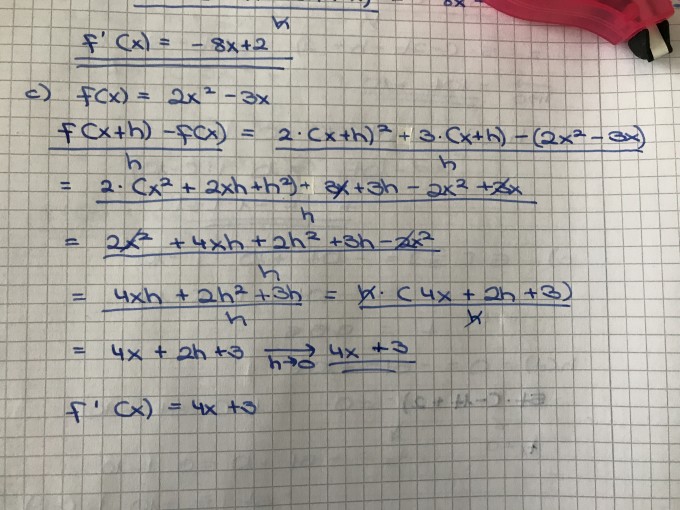 h
f'(x) = -8x+2
c) f(x) = 2x² - 3x
f(x+h) - f(x) / h = 2·(x+h)² + 3·(x+h) - (2x² - 3x) / h
= 2·(x² + 2xh+h²) + 3x + 3h - 2x² + 3x / h
= 2x² + 4xh + 2h² + 3h - 2x² / h
= 4xh + 2h² + 3h / h = h·(4x + 2h + 3) / h
= 4x + 2h + 3 → h→0 4x + 3
f'(x) = 4x + 3